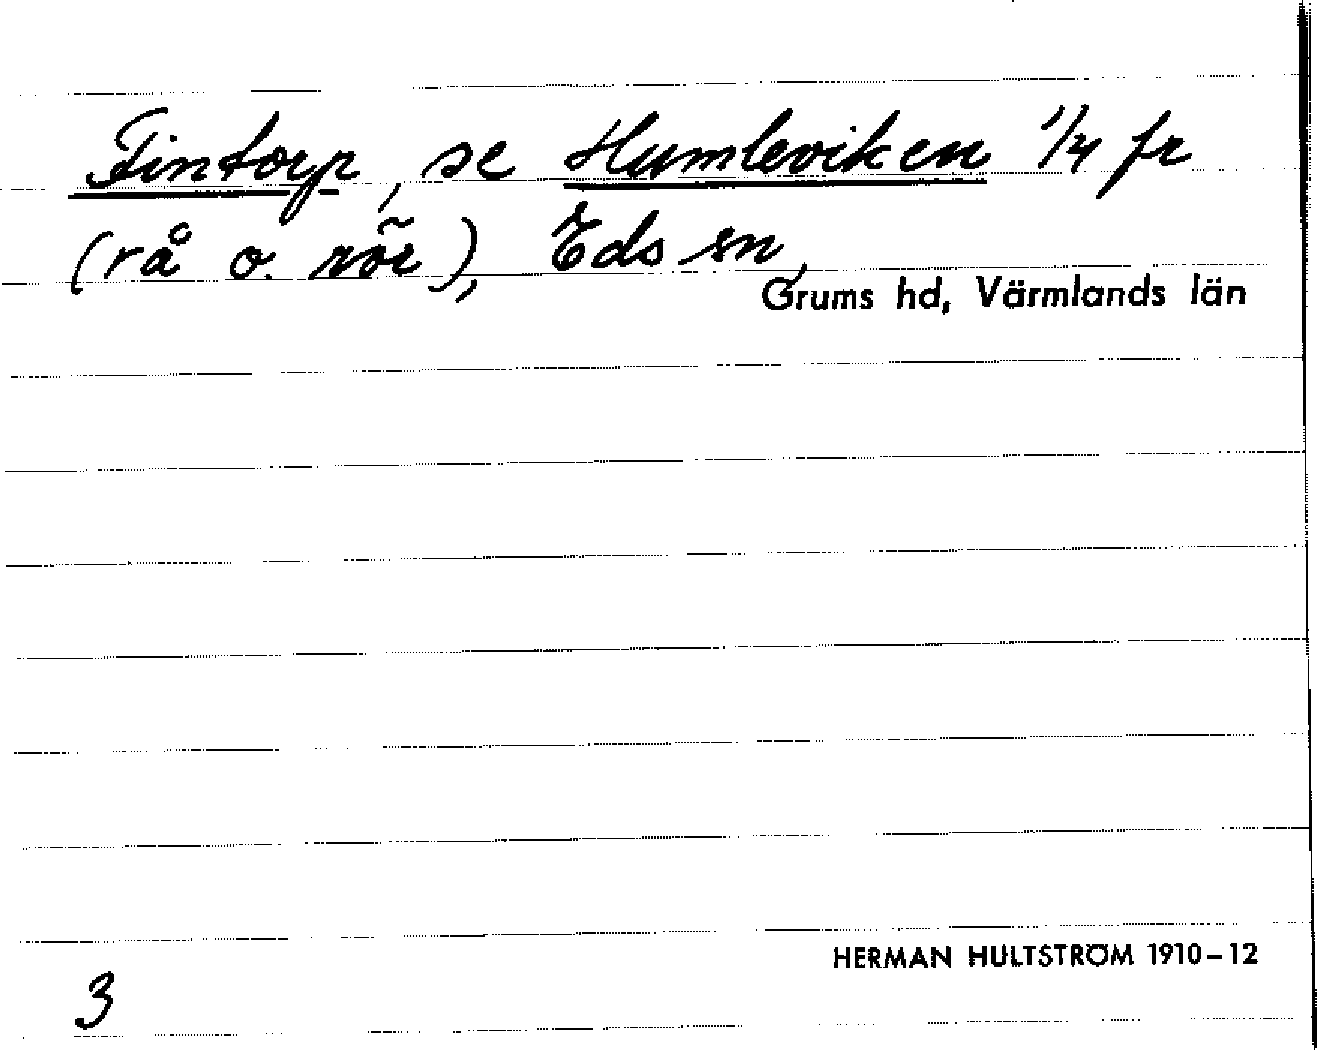 Fintorp, se Humleviken 1/4 fr
(rå o. rör), Eds sn,
Grums hd, Värmlands län
HERMAN HULTSTRÖM 1910-12
3